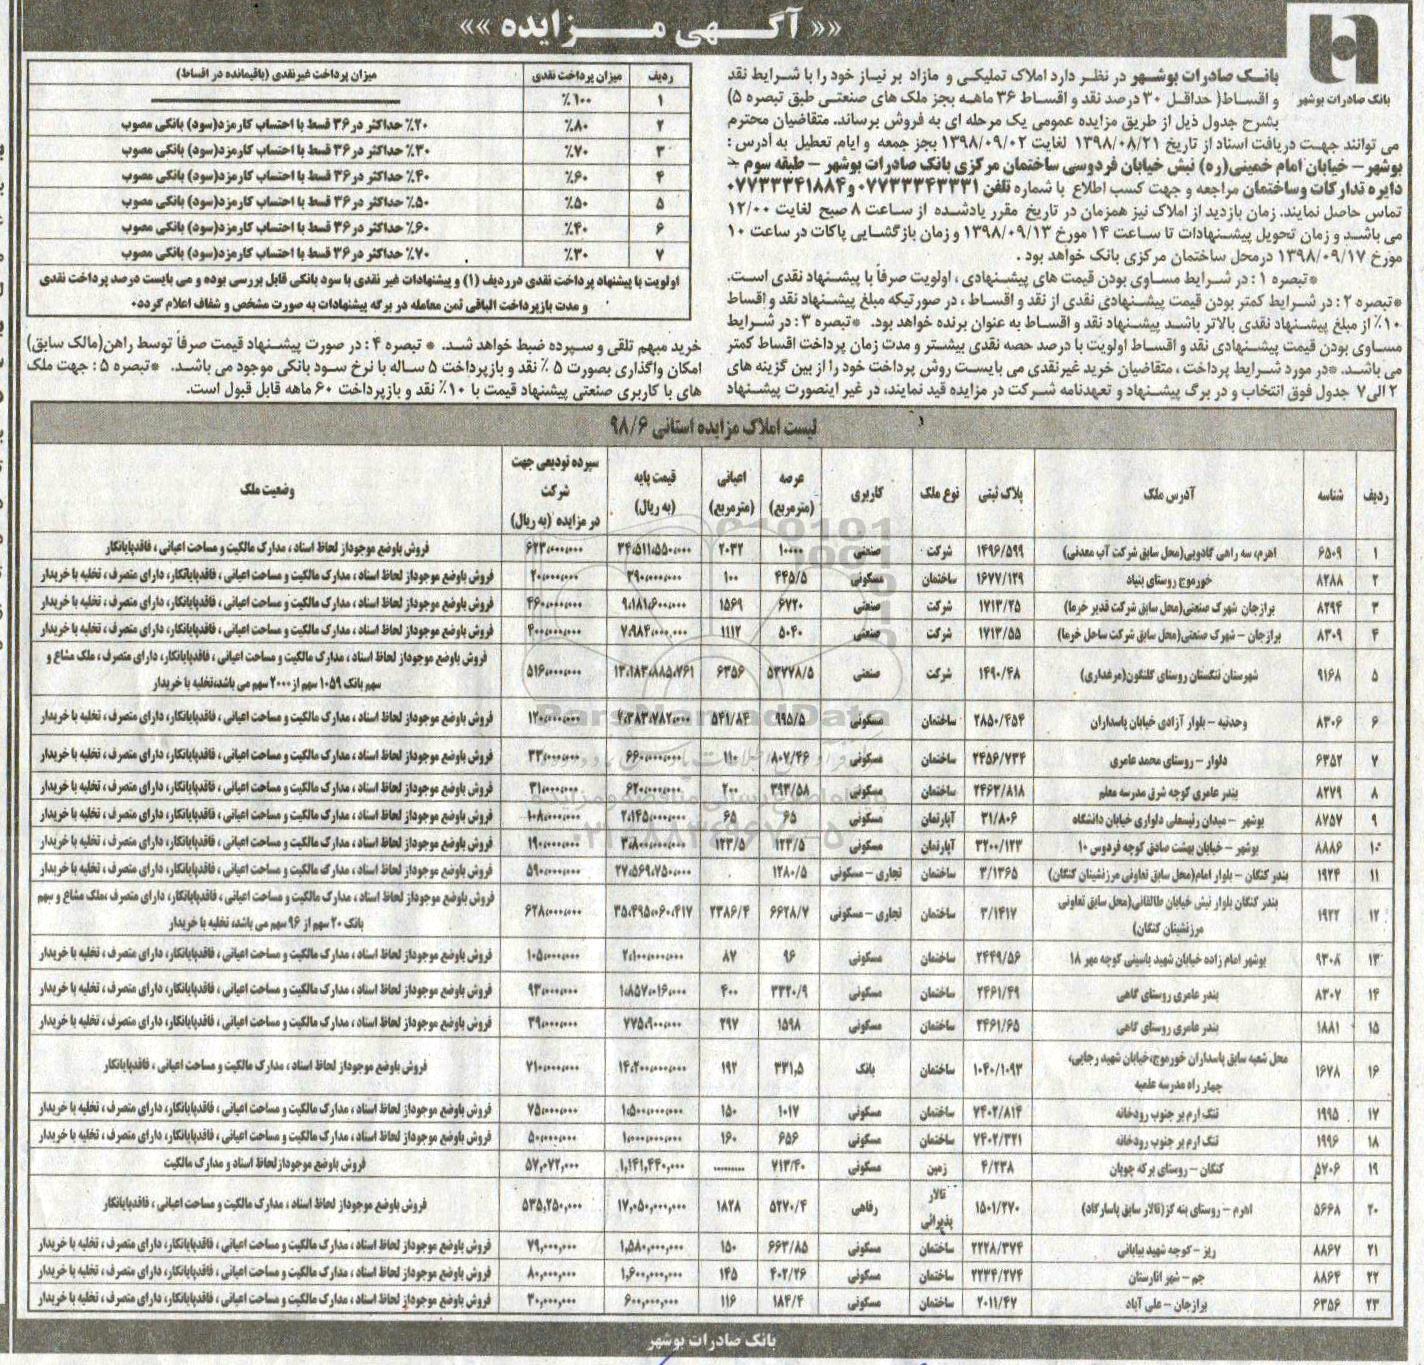 «« آگهی مزایده »»
بانک صادرات بوشهر
بانک صادرات بوشهر در نظر دارد املاک تملیکی و مازاد بر نیاز خود را با شرایط نقد
و اقساط( حداقل ۳۰ درصد نقد و اقساط ۳۶ ماهه بجز ملک های صنعتی طبق تبصره ۵)
بشرح جدول ذیل از طریق مزایده عمومی یک مرحله ای به فروش برساند. متقاضیان محترم
می توانند جهت دریافت اسناد از تاریخ ۱۳۹۸/۰۸/۲۱ لغایت ۱۳۹۸/۰۹/۰۲ بجز جمعه و ایام تعطیل به آدرس :
بوشهر – خیابان امام خمینی(ره) نبش خیابان فردوسی ساختمان مرکزی بانک صادرات بوشهر – طبقه سوم –
دایره تدارکات وساختمان مراجعه و جهت کسب اطلاع با شماره تلفن ۰۷۷۳۳۳۴۳۳۳۱ و۰۷۷۳۳۳۴۱۸۸۴
تماس حاصل نمایند. زمان بازدید از املاک نیز همزمان در تاریخ مقرر یادشده از ساعت ۸ صبح لغایت ۱۲/۰۰
می باشد و زمان تحویل پیشنهادات تا ساعت ۱۴ مورخ ۱۳۹۸/۰۹/۱۳ و زمان بازگشایی پاکات در ساعت ۱۰
مورخ ۱۳۹۸/۰۹/۱۷ درمحل ساختمان مرکزی بانک خواهد بود .
*تبصره ۱ : در شرایط مساوی بودن قیمت های پیشنهادی ، اولویت صرفاً با پیشنهاد نقدی است.
*تبصره ۲ : در شرایط کمتر بودن قیمت پیشنهادی نقدی از نقد و اقساط ، در صورتیکه مبلغ پیشنهاد نقد و اقساط
۱۰٪ از مبلغ پیشنهاد نقدی بالاتر باشد پیشنهاد نقد و اقساط به عنوان برنده خواهد بود. *تبصره ۳ : در شرایط
مساوی بودن قیمت پیشنهادی نقد و اقساط اولویت با درصد حصه نقدی بیشتر و مدت زمان پرداخت اقساط کمتر
می باشد. *در مورد شرایط پرداخت ، متقاضیان خرید غیرنقدی می بایست روش پرداخت خود را از بین گزینه های
۲ الی۷ جدول فوق انتخاب و در برگ پیشنهاد و تعهدنامه شرکت در مزایده قید نمایند، در غیر اینصورت پیشنهاد
ردیف | میزان پرداخت نقدی | میزان پرداخت غیرنقدی (باقیمانده در اقساط)
۱ | ۱۰۰٪
۲ | ۸۰٪ | ۲۰٪ حداکثر در ۳۶ قسط با احتساب کارمزد(سود) بانکی مصوب
۳ | ۷۰٪ | ۳۰٪ حداکثر در ۳۶ قسط با احتساب کارمزد(سود) بانکی مصوب
۴ | ۶۰٪ | ۴۰٪ حداکثر در ۳۶ قسط با احتساب کارمزد(سود) بانکی مصوب
۵ | ۵۰٪ | ۵۰٪ حداکثر در ۳۶ قسط با احتساب کارمزد(سود) بانکی مصوب
۶ | ۴۰٪ | ۶۰٪ حداکثر در ۳۶ قسط با احتساب کارمزد(سود) بانکی مصوب
۷ | ۳۰٪ | ۷۰٪ حداکثر در ۳۶ قسط با احتساب کارمزد(سود) بانکی مصوب
اولویت با پیشنهاد پرداخت نقدی درردیف (۱) و پیشنهادات غیر نقدی با سود بانکی قابل بررسی بوده و می بایست درصد پرداخت نقدی
و مدت بازپرداخت الباقی ثمن معامله در برگه پیشنهادات به صورت مشخص و شفاف اعلام گردد.
خرید مبهم تلقی و سپرده ضبط خواهد شد. * تبصره ۴ : در صورت پیشنهاد قیمت صرفاً توسط راهن(مالک سابق)
امکان واگذاری بصورت ۵ ٪ نقد و بازپرداخت ۵ ساله با نرخ سود بانکی موجود می باشد. *تبصره ۵ : جهت ملک
های با کاربری صنعتی پیشنهاد قیمت با ۱۰٪ نقد و بازپرداخت ۶۰ ماهه قابل قبول است.
لیست املاک مزایده استانی ۹۸/۶
ردیف | شناسه | آدرس ملک | پلاک ثبتی | نوع ملک | کاربری | عرصه (مترمربع) | اعیانی (مترمربع) | قیمت پایه (به ریال) | سپرده تودیعی جهت شرکت در مزایده (به ریال) | وضعیت ملک
۱ | ۶۵۰۹ | اهرم، سه راهی گادویی(محل سابق شرکت آب معدنی) | ۱۴۹۶/۵۹۹ | شرکت | صنعتی | ۱۰۰۰۰ | ۲۰۳۲ | ۲۴،۵۱۱،۵۵۰،۰۰۰ | ۶۲۳،۰۰۰،۰۰۰ | فروش باوضع موجوداز لحاظ اسناد ، مدارک مالکیت و مساحت اعیانی ، فاقدپایانکار
۲ | ۸۲۸۸ | خورموج روستای بنیاد | ۱۶۷۷/۱۲۹ | ساختمان | مسکونی | ۴۴۵/۵ | ۱۰۰ | ۳۹۰،۰۰۰،۰۰۰ | ۲۰،۰۰۰،۰۰۰ | فروش باوضع موجوداز لحاظ اسناد ، مدارک مالکیت و مساحت اعیانی ، فاقدپایانکار، دارای متصرف ، تخلیه با خریدار
۳ | ۸۲۹۴ | برازجان شهرک صنعتی(محل سابق شرکت قدیر خرما) | ۱۷۱۳/۲۵ | شرکت | صنعتی | ۶۷۲۰ | ۱۵۶۹ | ۹،۱۸۱،۶۰۰،۰۰۰ | ۴۶۰،۰۰۰،۰۰۰ | فروش باوضع موجوداز لحاظ اسناد ، مدارک مالکیت و مساحت اعیانی ، فاقدپایانکار، دارای متصرف ، تخلیه با خریدار
۴ | ۸۳۰۹ | برازجان – شهرک صنعتی(محل سابق شرکت ساحل خرما) | ۱۷۱۳/۵۵ | شرکت | صنعتی | ۵۰۴۰ | ۱۱۱۲ | ۷،۹۸۴،۰۰۰،۰۰۰ | ۴۰۰،۰۰۰،۰۰۰ | فروش باوضع موجوداز لحاظ اسناد ، مدارک مالکیت و مساحت اعیانی ، فاقدپایانکار، دارای متصرف ، تخلیه با خریدار
۵ | ۹۱۶۸ | شهرستان تنگستان روستای گلنگون(مرغداری) | ۱۴۹۰/۴۸ | شرکت | صنعتی | ۵۳۷۷۸/۵ | ۶۳۵۶ | ۱۳،۱۸۳،۸۸۵،۷۶۱ | ۵۱۶،۰۰۰،۰۰۰ | فروش باوضع موجوداز لحاظ اسناد ، مدارک مالکیت و مساحت اعیانی ، فاقدپایانکار، دارای متصرف ، ملک مشاع و سهم بانک ۱۰۵۹ سهم از ۲۰۰۰ سهم می باشد،تخلیه با خریدار
۶ | ۸۳۰۶ | وحدتیه – بلوار آزادی خیابان پاسداران | ۲۸۵۰/۴۵۴ | ساختمان | مسکونی | ۹۹۵/۵ | ۵۴۱/۸۴ | ۲،۳۸۳،۷۸۲،۰۰۰ | ۱۲۰،۰۰۰،۰۰۰ | فروش باوضع موجوداز لحاظ اسناد ، مدارک مالکیت و مساحت اعیانی ، فاقدپایانکار، دارای متصرف ، تخلیه با خریدار
۷ | ۶۳۵۲ | دلوار – روستای محمد عامری | ۲۴۵۶/۷۳۴ | ساختمان | مسکونی | ۸۰۷/۴۶ | ۱۱۰ | ۶۶۰،۰۰۰،۰۰۰ | ۳۳،۰۰۰،۰۰۰ | فروش باوضع موجوداز لحاظ اسناد ، مدارک مالکیت و مساحت اعیانی ، فاقدپایانکار، دارای متصرف ، تخلیه با خریدار
۸ | ۸۲۷۹ | بندر عامری کوچه شرق مدرسه معلم | ۲۴۶۲/۸۱۸ | ساختمان | مسکونی | ۳۹۳/۵۸ | ۲۰۰ | ۶۲۰،۰۰۰،۰۰۰ | ۳۱،۰۰۰،۰۰۰ | فروش باوضع موجوداز لحاظ اسناد ، مدارک مالکیت و مساحت اعیانی ، فاقدپایانکار، دارای متصرف ، تخلیه با خریدار
۹ | ۸۷۵۷ | بوشهر – میدان رئیسعلی دلواری خیابان دانشگاه | ۳۱/۸۰۶ | آپارتمان | مسکونی | ۶۵ | ۶۵ | ۲،۱۴۵،۰۰۰،۰۰۰ | ۱۰۸،۰۰۰،۰۰۰ | فروش باوضع موجوداز لحاظ اسناد ، مدارک مالکیت و مساحت اعیانی ، فاقدپایانکار، دارای متصرف ، تخلیه با خریدار
۱۰ | ۸۸۸۶ | بوشهر – خیابان بهشت صادق کوچه فردوس ۱۰ | ۳۲۰۰/۱۲۳ | آپارتمان | مسکونی | ۱۲۳/۵ | ۱۲۳/۵ | ۳،۸۰۰،۰۰۰،۰۰۰ | ۱۹۰،۰۰۰،۰۰۰ | فروش باوضع موجوداز لحاظ اسناد ، مدارک مالکیت و مساحت اعیانی ، فاقدپایانکار، دارای متصرف ، تخلیه با خریدار
۱۱ | ۱۹۲۴ | بندر کنگان – بلوار امام(محل سابق تعاونی مرزنشینان کنگان) | ۳/۱۳۶۵ | ساختمان | تجاری – مسکونی | ۱۲۸۰/۵ | ۰ | ۲۷،۵۶۹،۷۵۰،۰۰۰ | ۵۹۰،۰۰۰،۰۰۰ | فروش باوضع موجوداز لحاظ اسناد ، مدارک مالکیت و مساحت اعیانی ، فاقدپایانکار، دارای متصرف ، تخلیه با خریدار
۱۲ | ۱۹۲۲ | بندر کنگان بلوار نبش خیابان طالقانی(محل سابق تعاونی مرزنشینان کنگان) | ۳/۱۴۱۷ | ساختمان | تجاری – مسکونی | ۶۶۲۸/۷ | ۲۳۸۶/۴ | ۳۵،۴۹۵،۰۶۰،۴۱۷ | ۶۲۸،۰۰۰،۰۰۰ | فروش باوضع موجوداز لحاظ اسناد ، مدارک مالکیت و مساحت اعیانی ، فاقدپایانکار، دارای متصرف ،ملک مشاع و سهم بانک ۲۰ سهم از ۹۶ سهم می باشد، تخلیه با خریدار
۱۳ | ۹۳۰۸ | بوشهر امام زاده خیابان شهید یاسینی کوچه مهر ۱۸ | ۲۴۴۹/۵۶ | ساختمان | مسکونی | ۹۶ | ۸۷ | ۲،۱۰۰،۰۰۰،۰۰۰ | ۱۰۵،۰۰۰،۰۰۰ | فروش باوضع موجوداز لحاظ اسناد ، مدارک مالکیت و مساحت اعیانی ، فاقدپایانکار، دارای متصرف ، تخلیه با خریدار
۱۴ | ۸۳۰۷ | بندر عامری روستای گاهی | ۲۴۶۱/۴۹ | ساختمان | مسکونی | ۳۳۲۰/۹ | ۴۰۰ | ۱،۸۵۷،۰۱۶،۰۰۰ | ۹۳،۰۰۰،۰۰۰ | فروش باوضع موجوداز لحاظ اسناد ، مدارک مالکیت و مساحت اعیانی ، فاقدپایانکار، دارای متصرف ، تخلیه با خریدار
۱۵ | ۱۸۸۱ | بندر عامری روستای گاهی | ۲۴۶۱/۶۵ | ساختمان | مسکونی | ۱۵۹۸ | ۲۹۷ | ۷۷۵،۹۰۰،۰۰۰ | ۳۹،۰۰۰،۰۰۰ | فروش باوضع موجوداز لحاظ اسناد ، مدارک مالکیت و مساحت اعیانی ، فاقدپایانکار، دارای متصرف ، تخلیه با خریدار
۱۶ | ۱۶۷۸ | محل شعبه سابق پاسداران خورموج،خیابان شهید رجایی، چهار راه مدرسه علمیه | ۱۰۴۰/۱۰۹۳ | ساختمان | بانک | ۳۳۱,۵ | ۱۹۲ | ۱۴،۲۰۰،۰۰۰،۰۰۰ | ۷۱۰،۰۰۰،۰۰۰ | فروش باوضع موجوداز لحاظ اسناد ، مدارک مالکیت و مساحت اعیانی ، فاقدپایانکار
۱۷ | ۱۹۹۵ | تنگ ارم بر جنوب رودخانه | ۷۴۰۲/۸۱۴ | ساختمان | مسکونی | ۱۰۱۷ | ۱۵۰ | ۱،۵۰۰،۰۰۰،۰۰۰ | ۷۵،۰۰۰،۰۰۰ | فروش باوضع موجوداز لحاظ اسناد ، مدارک مالکیت و مساحت اعیانی ، فاقدپایانکار، دارای متصرف ، تخلیه با خریدار
۱۸ | ۱۹۹۶ | تنگ ارم بر جنوب رودخانه | ۷۴۰۲/۳۲۱ | ساختمان | مسکونی | ۶۵۶ | ۱۶۰ | ۱،۰۰۰،۰۰۰،۰۰۰ | ۵۰،۰۰۰،۰۰۰ | فروش باوضع موجوداز لحاظ اسناد ، مدارک مالکیت و مساحت اعیانی ، فاقدپایانکار، دارای متصرف ، تخلیه با خریدار
۱۹ | ۵۷۰۶ | کنگان – روستای برکه چوپان | ۴/۲۳۸ | زمین | مسکونی | ۷۱۳/۴۰ | ......... | ۱,۱۴۱,۴۴۰,۰۰۰ | ۵۷,۰۷۲,۰۰۰ | فروش باوضع موجودازلحاظ اسناد و مدارک مالکیت
۲۰ | ۵۶۶۸ | اهرم – روستای بنه گز(تالار سابق پاسارگاد) | ۱۵۰۱/۲۷۰ | تالار پذیرائی | رفاهی | ۵۲۷۰/۴ | ۱۸۲۸ | ۱۷,۰۵۰,۰۰۰,۰۰۰ | ۵۳۵,۲۵۰,۰۰۰ | فروش باوضع موجوداز لحاظ اسناد ، مدارک مالکیت و مساحت اعیانی ، فاقدپایانکار
۲۱ | ۸۸۶۷ | ریز –کوچه شهید بیابانی | ۲۲۲۸/۳۷۴ | ساختمان | مسکونی | ۶۶۳/۸۵ | ۱۵۰ | ۱,۵۸۰,۰۰۰,۰۰۰ | ۷۹,۰۰۰,۰۰۰ | فروش باوضع موجوداز لحاظ اسناد ، مدارک مالکیت و مساحت اعیانی ، فاقدپایانکار، دارای متصرف ، تخلیه با خریدار
۲۲ | ۸۸۶۴ | جم – شهر انارستان | ۲۲۳۴/۲۷۴ | ساختمان | مسکونی | ۴۰۲/۲۶ | ۱۴۵ | ۱,۶۰۰,۰۰۰,۰۰۰ | ۸۰,۰۰۰,۰۰۰ | فروش باوضع موجوداز لحاظ اسناد ، مدارک مالکیت و مساحت اعیانی ، فاقدپایانکار، دارای متصرف ، تخلیه با خریدار
۲۳ | ۶۳۵۶ | برازجان – علی آباد | ۲۰۱۱/۴۷ | ساختمان | مسکونی | ۱۸۴/۴ | ۱۱۶ | ۶۰۰,۰۰۰,۰۰۰ | ۳۰,۰۰۰,۰۰۰ | فروش باوضع موجوداز لحاظ اسناد ، مدارک مالکیت و مساحت اعیانی ، فاقدپایانکار، دارای متصرف ، تخلیه با خریدار
ParsNamadData
بانک صادرات بوشهر